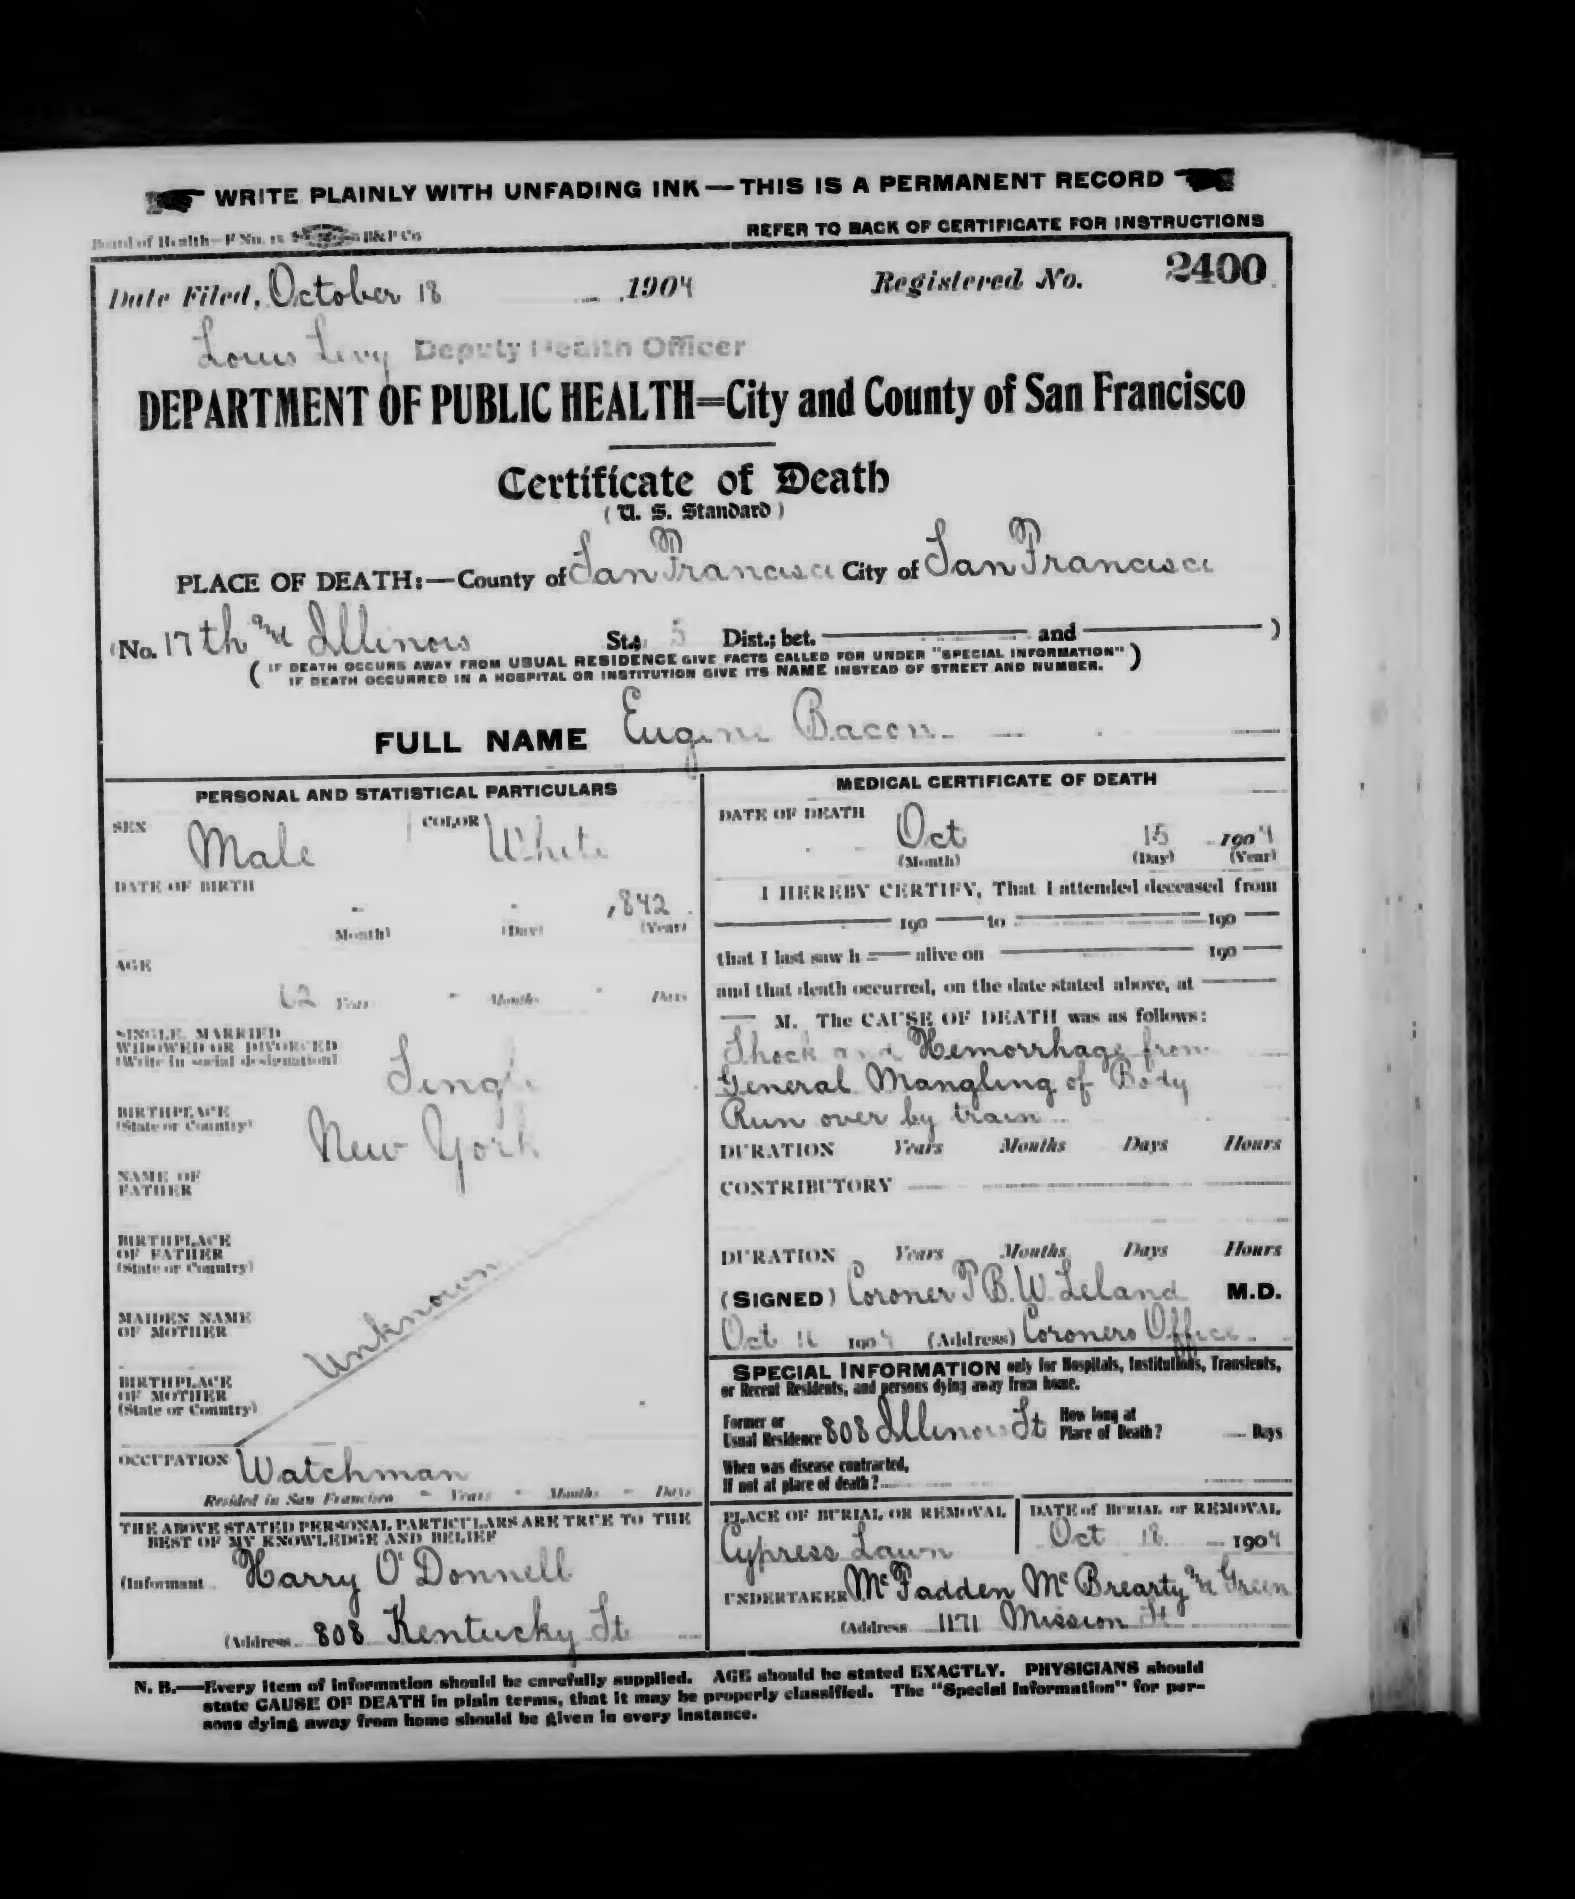 WRITE PLAINLY WITH UNFADING INK — THIS IS A PERMANENT RECORD
Board of Health—F No. 15 B&P Co
REFER TO BACK OF CERTIFICATE FOR INSTRUCTIONS
Date Filed, October 18 1904 Registered No. 2400
Louis Levy Deputy Health Officer
DEPARTMENT OF PUBLIC HEALTH=City and County of San Francisco
Certificate of Death
( U. S. Standard )
PLACE OF DEATH:—County of San Francisco City of San Francisco
(No. 17th and Illinois St.; 5 Dist.; bet. and )
( IF DEATH OCCURS AWAY FROM USUAL RESIDENCE GIVE FACTS CALLED FOR UNDER "SPECIAL INFORMATION" )
IF DEATH OCCURRED IN A HOSPITAL OR INSTITUTION GIVE ITS NAME INSTEAD OF STREET AND NUMBER.
FULL NAME Eugene Bacon
PERSONAL AND STATISTICAL PARTICULARS
SEX Male COLOR White
DATE OF BIRTH
- - 1842
(Month) (Day) (Year)
AGE
62 Years - Months - Days
SINGLE, MARRIED
WIDOWED OR DIVORCED
(Write in social designation) Single
BIRTHPLACE
(State or Country) New York
NAME OF
FATHER
BIRTHPLACE
OF FATHER
(State or Country)
Unknown
MAIDEN NAME
OF MOTHER
BIRTHPLACE
OF MOTHER
(State or Country)
OCCUPATION Watchman
Resided in San Francisco - Years - Months - Days
THE ABOVE STATED PERSONAL PARTICULARS ARE TRUE TO THE
BEST OF MY KNOWLEDGE AND BELIEF
(Informant Harry O'Donnell
(Address 808 Kentucky St
MEDICAL CERTIFICATE OF DEATH
DATE OF DEATH
Oct 15 1904
(Month) (Day) (Year)
I HEREBY CERTIFY, That I attended deceased from
190 to 190
that I last saw h alive on 190
and that death occurred, on the date stated above, at
M. The CAUSE OF DEATH was as follows:
Shock and Hemorrhage from
General Mangling of Body
Run over by train
DURATION Years Months Days Hours
CONTRIBUTORY
DURATION Years Months Days Hours
(SIGNED) Coroner T B. W. Leland M.D.
Oct 1904 (Address) Coroners Office
SPECIAL INFORMATION only for Hospitals, Institutions, Transients,
or Recent Residents, and persons dying away from home.
Former or
Usual Residence 808 Illinois St How long at
Place of Death? Days
When was disease contracted,
If not at place of death?
PLACE OF BURIAL OR REMOVAL
Cypress Lawn
DATE of BURIAL or REMOVAL
Oct 18 1904
UNDERTAKER McFadden McBrearty and Green
(Address 1171 Mission St
N. B.—Every item of information should be carefully supplied. AGE should be stated EXACTLY. PHYSICIANS should
state CAUSE OF DEATH in plain terms, that it may be properly classified. The "Special Information" for per-
sons dying away from home should be given in every instance.